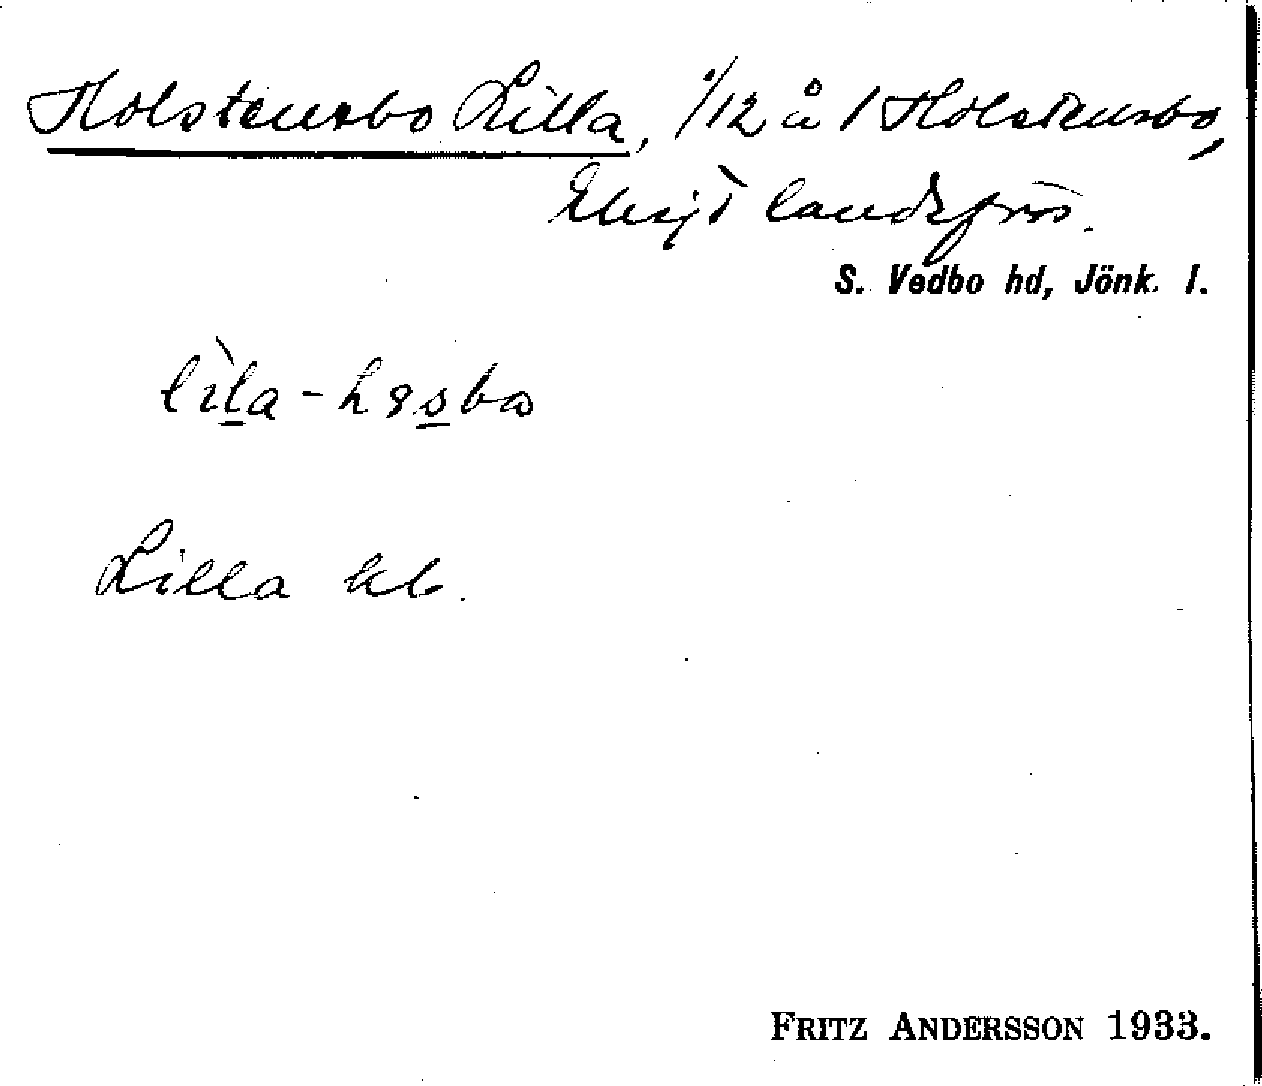 Holstensbo Lilla, 1/12 å 1 Holstensbo,
Eksjö landsförs.
S. Vedbo hd, Jönk. l.
Lilla
FRITZ ANDERSSON 1933.